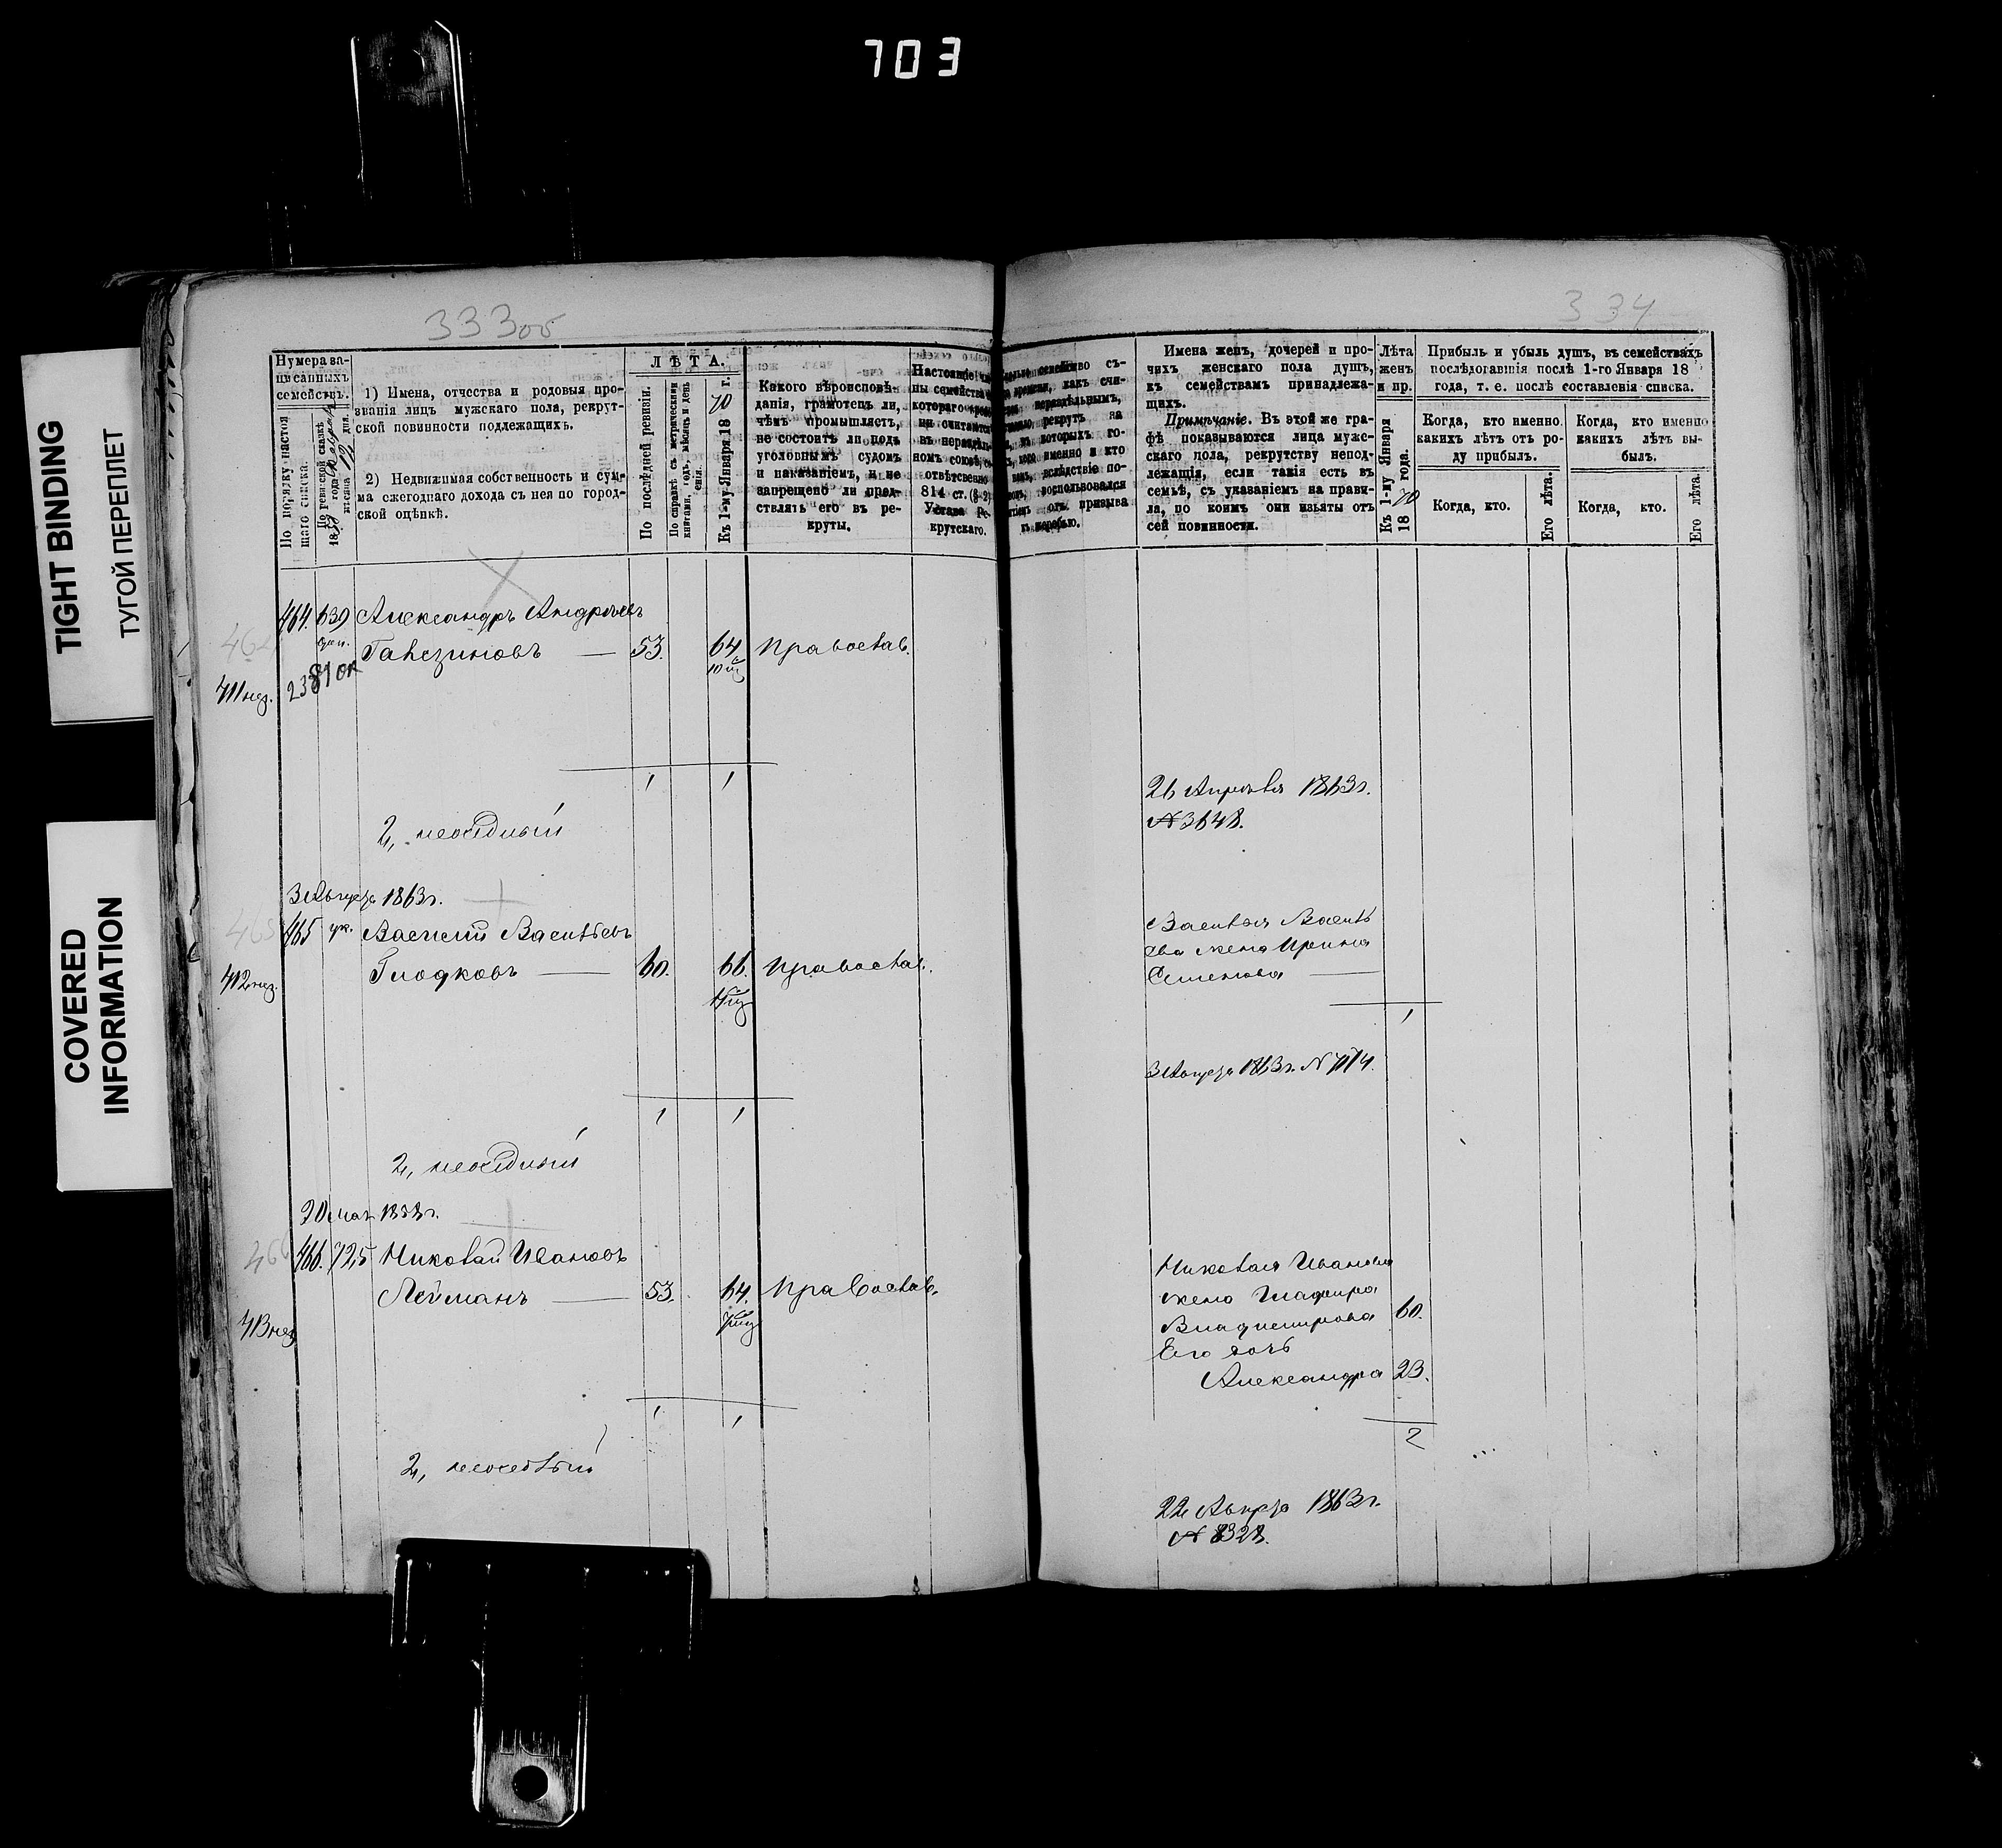 703
TIGHT BINDING
ТУГОЙ ПЕРЕПЛЕТ
COVERED
INFORMATION
333об
334
Нумера за-
писанныхъ
семействъ.
По порядку настоя
щаго списка.
По ревизской сказкѣ
1) Имена, отчества и родовыя про-
званія лицъ мужскаго пола, рекрут-
ской повинности подлежащихъ.
2) Недвижимая собственность и сум-
ма ежегоднаго дохода съ нея по город-
ской оцѣнкѣ.
ЛѢТА.
По послѣдней ревизіи.
По справкѣ съ метрическими
книгами, годъ, мѣсяцъ и день
Къ 1-му Января 1870 г.
Какого вѣроисповѣ-
данія, грамотенъ ли,
чѣмъ промышляетъ,
не состоитъ ли подъ
уголовнымъ судомъ
и наказаніемъ, и не
запрещено ли пред-
ставлять его въ ре-
круты.
Настоящіе
814 ст.
Устава Ре-
крутскаго.
Имена женъ, дочерей и про-
чихъ женскаго пола душъ,
къ семействамъ принадлежа-
щихъ.
Примѣчаніе. Въ этой же гра-
фѣ показываются лица муже-
скаго пола, рекрутству непод-
лежащія, если такія есть въ
семьѣ, съ указаніемъ на прави-
ла, по коимъ они изъяты отъ
сей повинности.
Лѣта
женъ
и пр.
Къ 1-му Января
1870 года.
Прибыль и убыль душъ, въ семействахъ
послѣдовавшія послѣ 1-го Января 18
года, т. е. послѣ составленія списка.
Когда, кто именно
какихъ лѣтъ отъ ро-
ду прибылъ.
Когда, кто именно
какихъ лѣтъ вы-
былъ.
Когда, кто.
Его лѣта.
Когда, кто.
Его лѣта.
464. 639 Александръ Андреевъ
53. 64 Православ.
411 нез.
1 1
26 Апрѣля 1863г.
№ 3648.
2, неосѣдлый
3 Августа 1863г.
465 Василій Васильевъ
Гладковъ — 60. 66. Православ.
412 нез.
Василья Василь
ева жена Ирина
Семенова —
1
3 Августа 1863г.
1 1
2, неосѣдлый
20 Мая 1858г.
466. 725 Николай Ивановъ
Лейманъ — 53. 64. Православ.
413 нез
Николая Иванова
жена Глафира
Владимирова 60.
Его дочь
Александра 23.
1 1
2
2, неосѣдлый
22 Августа 1863г.
№ 8328.